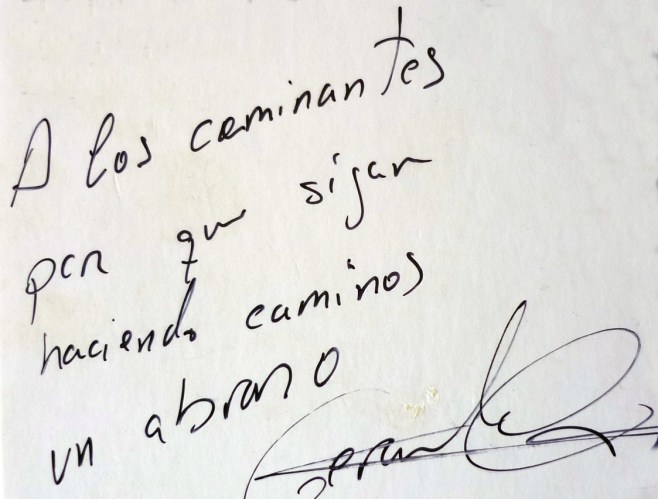 A los caminantes
para que sigan
haciendo caminos
un abrazo